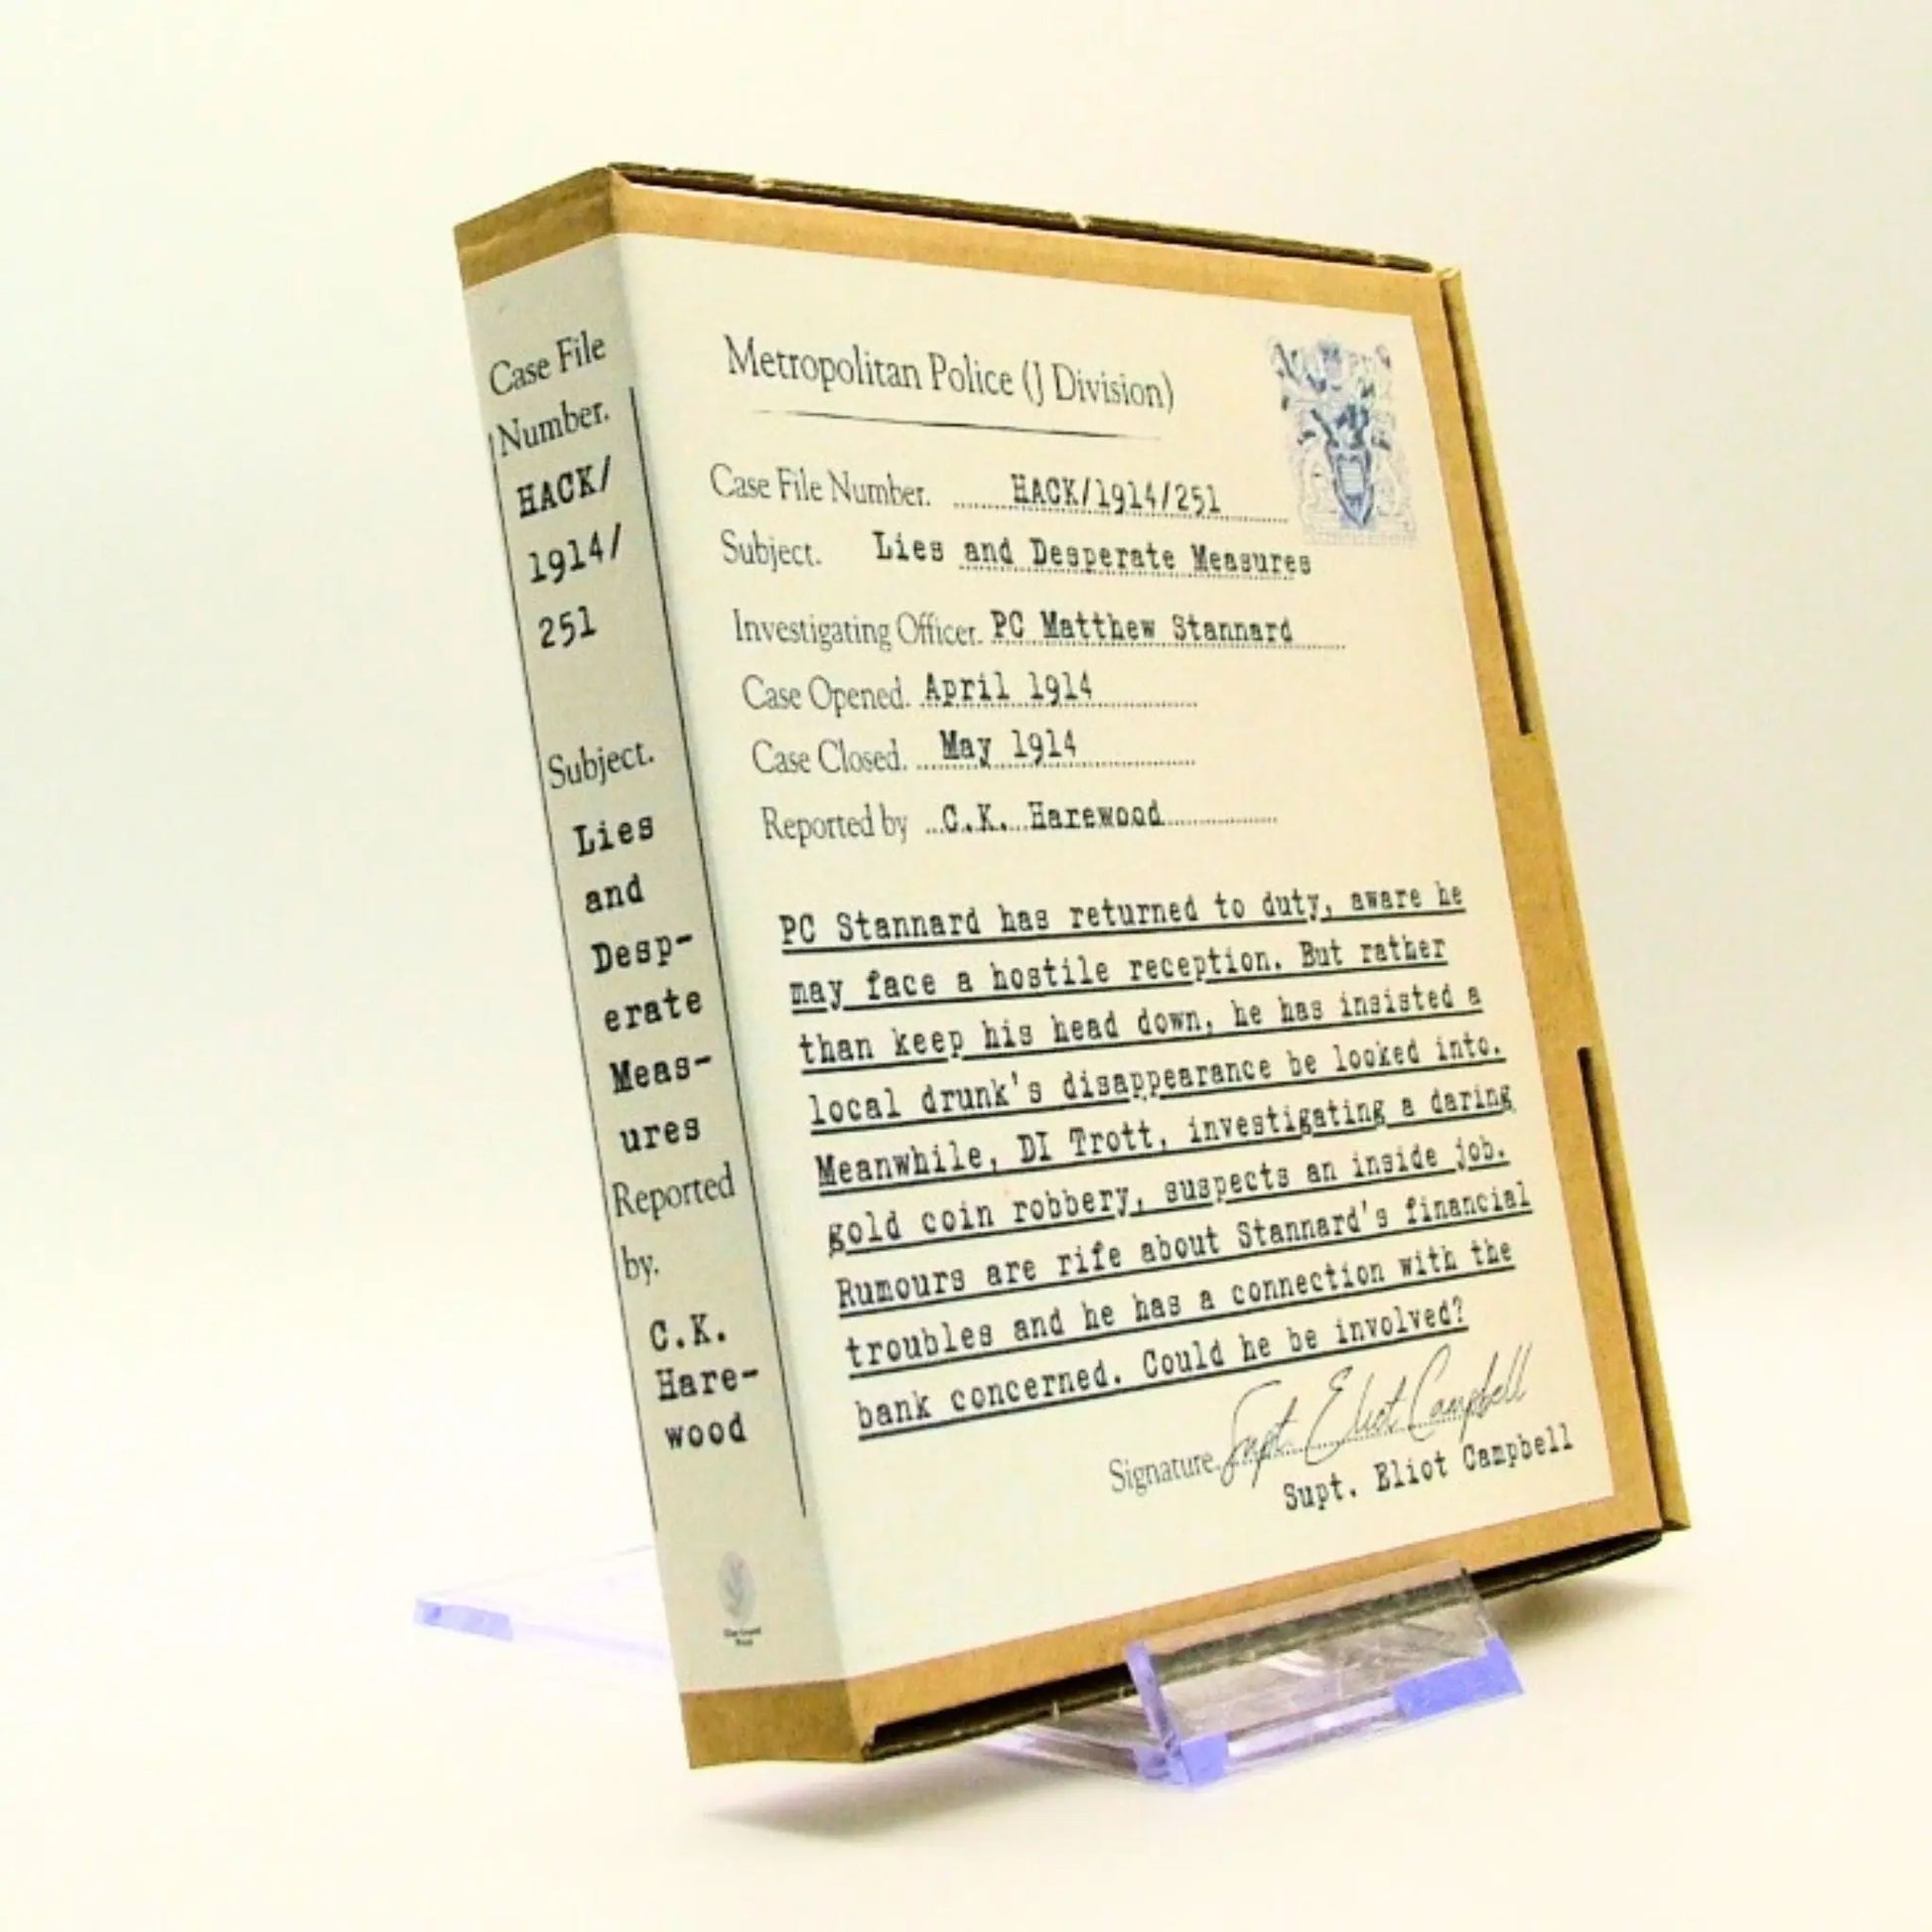 Case File
Number.
HACK/
1914/
251
Subject.
Lies
and
Desp-
erate
Meas-
ures
Reported
by.
C.K.
Hare-
wood
Metropolitan Police (J Division)
Case File Number. HACK/1914/251
Subject. Lies and Desperate Measures
Investigating Officer. PC Matthew Stannard
Case Opened. April 1914
Case Closed. May 1914
Reported by C.K. Harewood
PC Stannard has returned to duty, aware he
may face a hostile reception. But rather
than keep his head down, he has insisted a
local drunk's disappearance be looked into.
Meanwhile, DI Trott, investigating a daring
gold coin robbery, suspects an inside job.
Rumours are rife about Stannard's financial
troubles and he has a connection with the
bank concerned. Could he be involved?
Signature. Supt. Eliot Campbell
Supt. Eliot Campbell